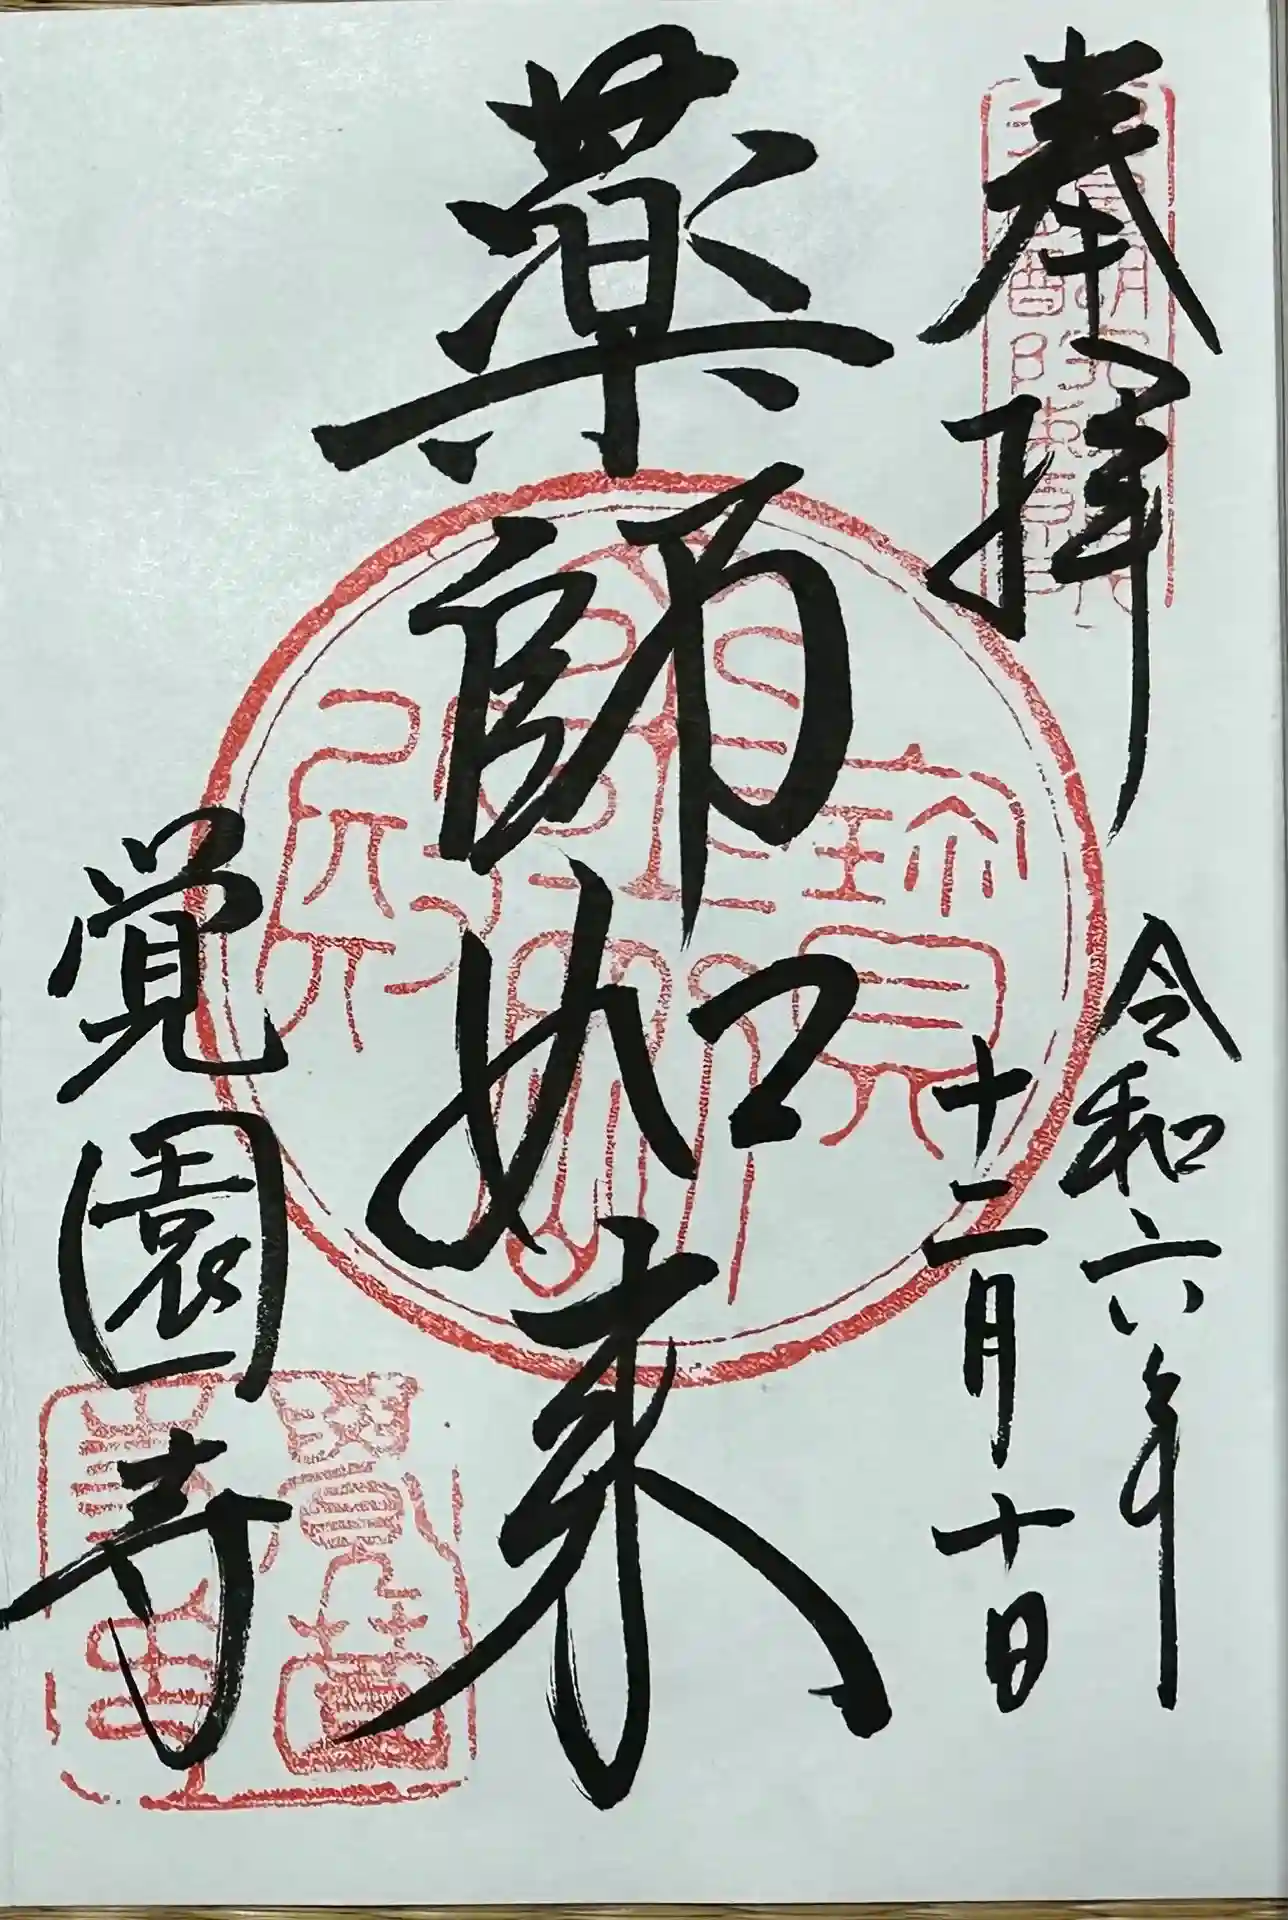 奉拝
令和六年
十二月十日
薬師如来
覚園寺